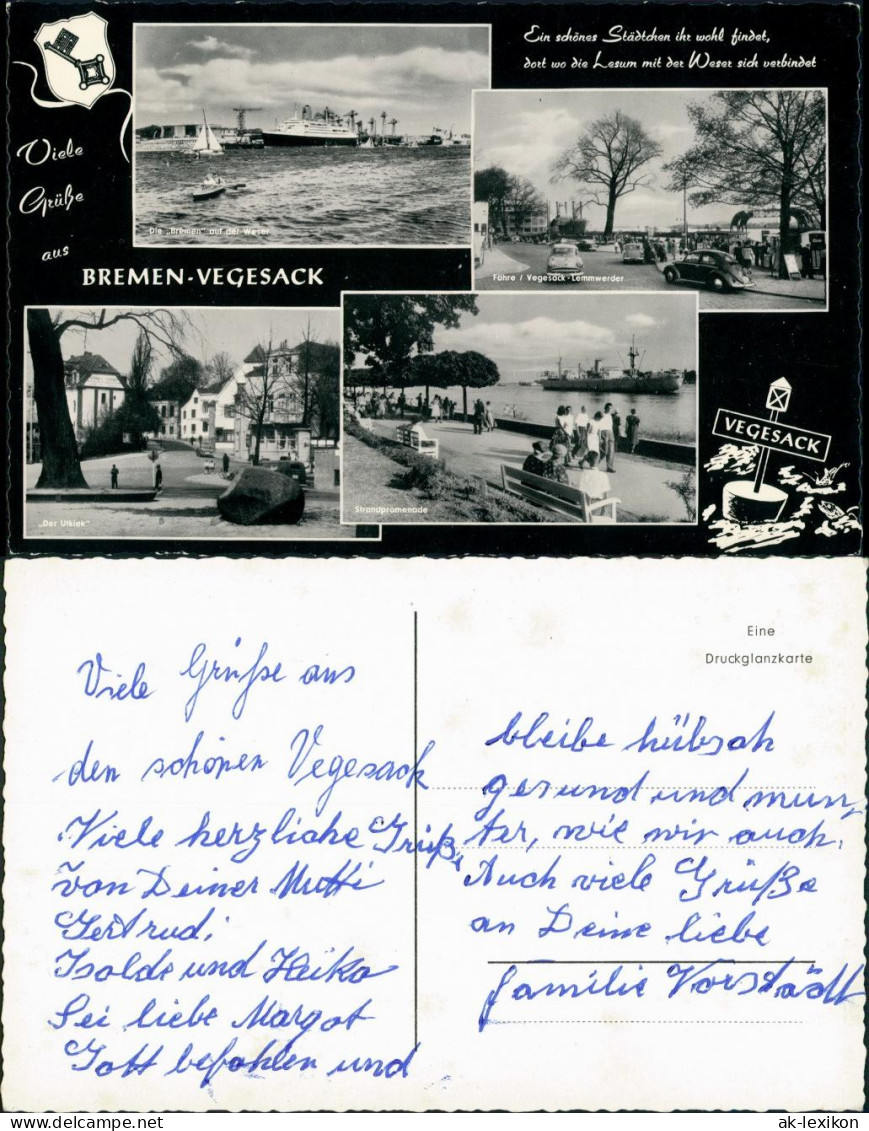 Ein schönes Städtchen ihr wohl findet,
dort wo die Lesum mit der Weser sich verbindet
Viele
Grüße
aus
BREMEN-VEGESACK
Die „Bremen" auf der Weser
Fähre / Vegesack-Lemmwerder
„Der Utkiek"
Strandpromenade
VEGESACK
Eine
Druckglanzkarte
Viele Grüße aus
den schönen Vegesack
Viele herzliche Grüße
von Deiner Mutti
Gertrud,
Isolde und Heiko
Sei liebe Margot
Gott befohlen und
bleibe hübsch
gesund und mun-
ter, wie wir auch.
Auch viele Grüße
an Deine liebe
familie Vorstädt
ak-lexikon